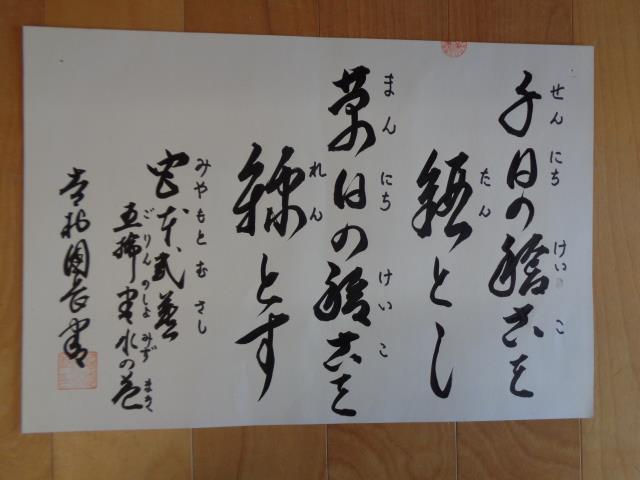 せんにち けいこ
千日の稽古を
たん
鍛とし
まんにち けいこ
萬日の稽古を
れん
錬とす
みやもと むさし
宮本武蔵
ごりんのしょ みず まき
五輪書水の巻